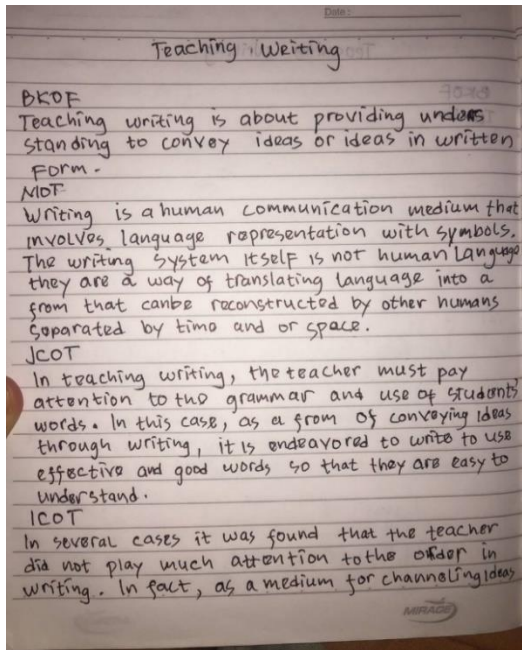 Date :
Teaching, Weiting
BKOF
Teaching writing is about providing unders
standing to convey ideas or ideas in written
Form.
MOT
Writing is a human communication medium that
involves language representation with symbols.
The writing system itself is not human language
they are a way of translating language into a
from that canbe reconstructed by other humans
separated by time and or space.
JCOT
In teaching writing, the teacher must pay
attention to the grammar and use of students'
words. In this case, as a from of conveying ideas
through writing, it is endeavored to write to use
effective and good words so that they are easy to
understand.
ICOT
In several cases it was found that the teacher
did not play much attention to the order in
writing. In fact, as a medium for channeling ideas
MIRAGE